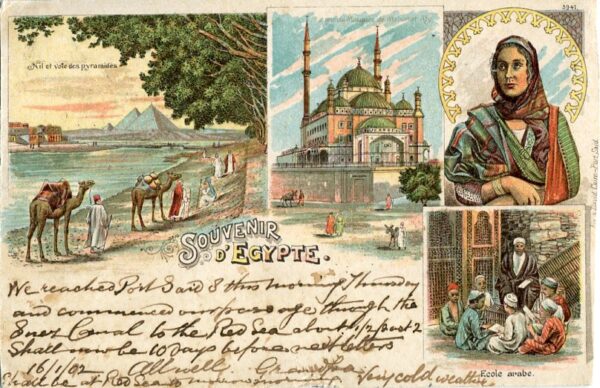 3941
Nil et vote des pyramides
SOUVENIR
D'EGYPTE.
Ecole arabe.
We reached Port Said 8 this morning Thursday
and commenced our passage through the
Suez Canal to the Red Sea about 1/2 past 2
Shall now be 10 days before next letters
16/1/02 All well, Grandpa
Shall be at Red Sea to morrow morning. Very cold weather